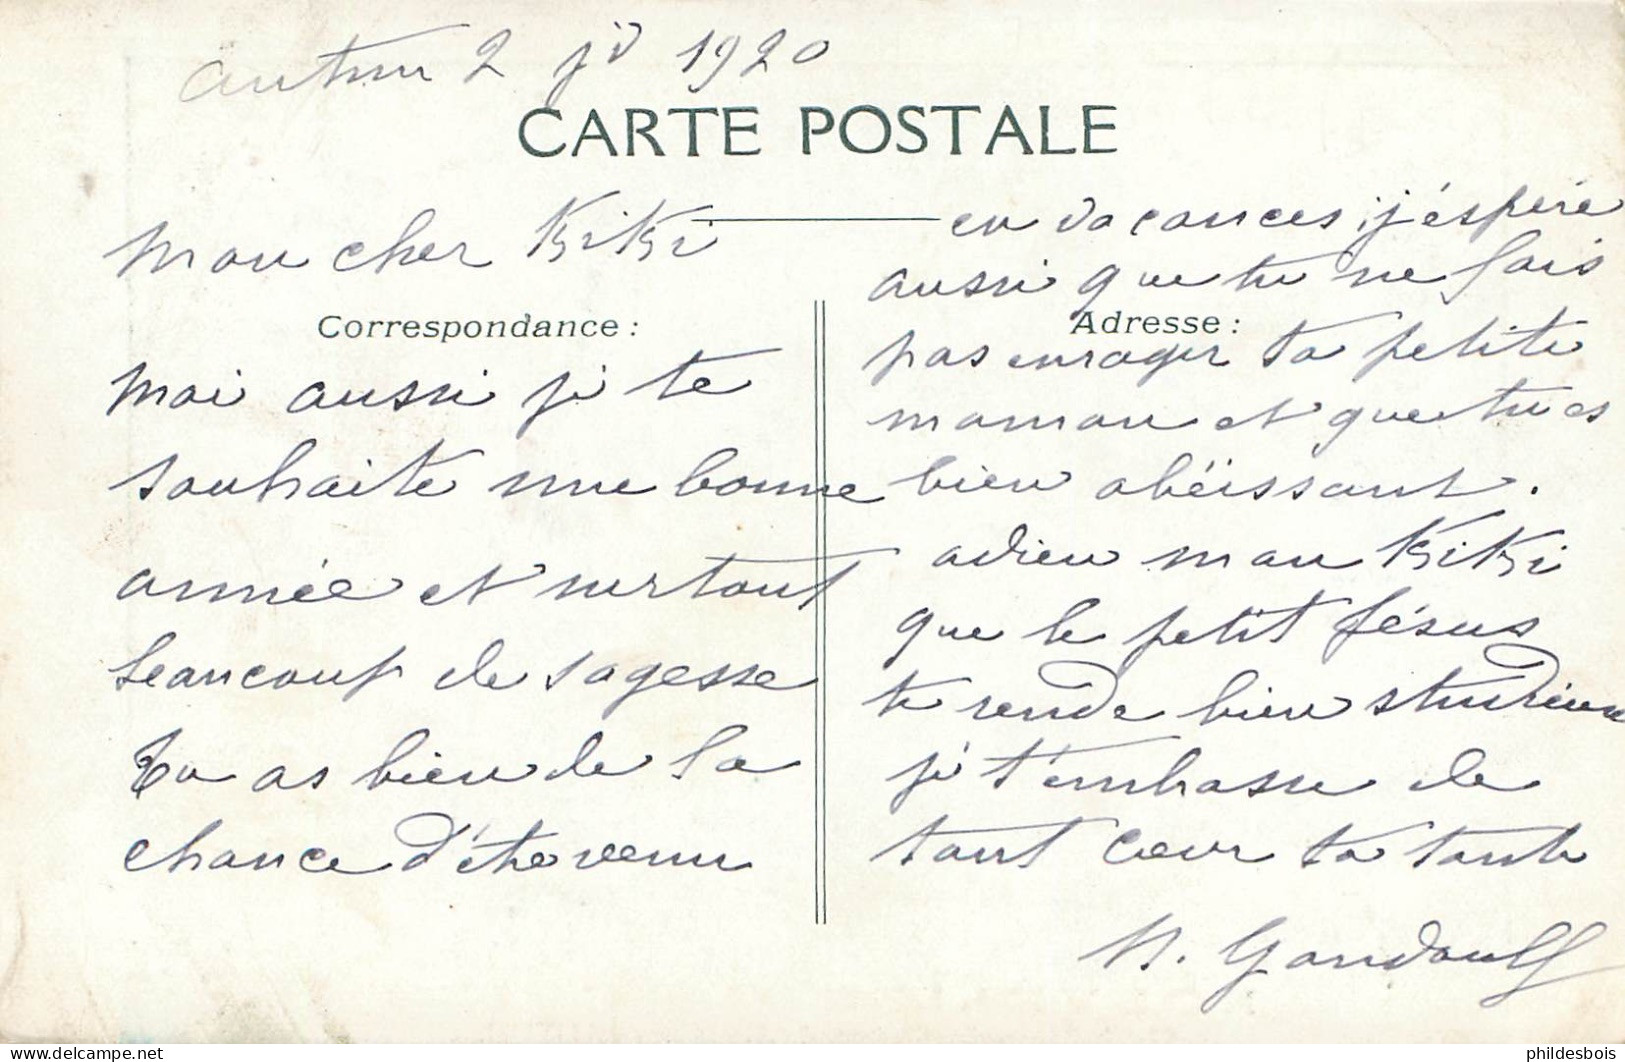 Autun 2 jr 1920
CARTE POSTALE
Mon cher KiKi
Correspondance :
Moi aussi je te
souhaite une bonne
année et surtout
beaucoup de sagesse
Tu as bien de la
chance d'être venu
en vacances, j'éspère
aussi que tu ne fais
Adresse :
pas enrager ta petite
maman et que tu es
bien obëissant.
adieu mon KiKi
que le petit Jésus
te rende bien studieux
je t'embrasse de
tout cœur ta tante
phildesbois